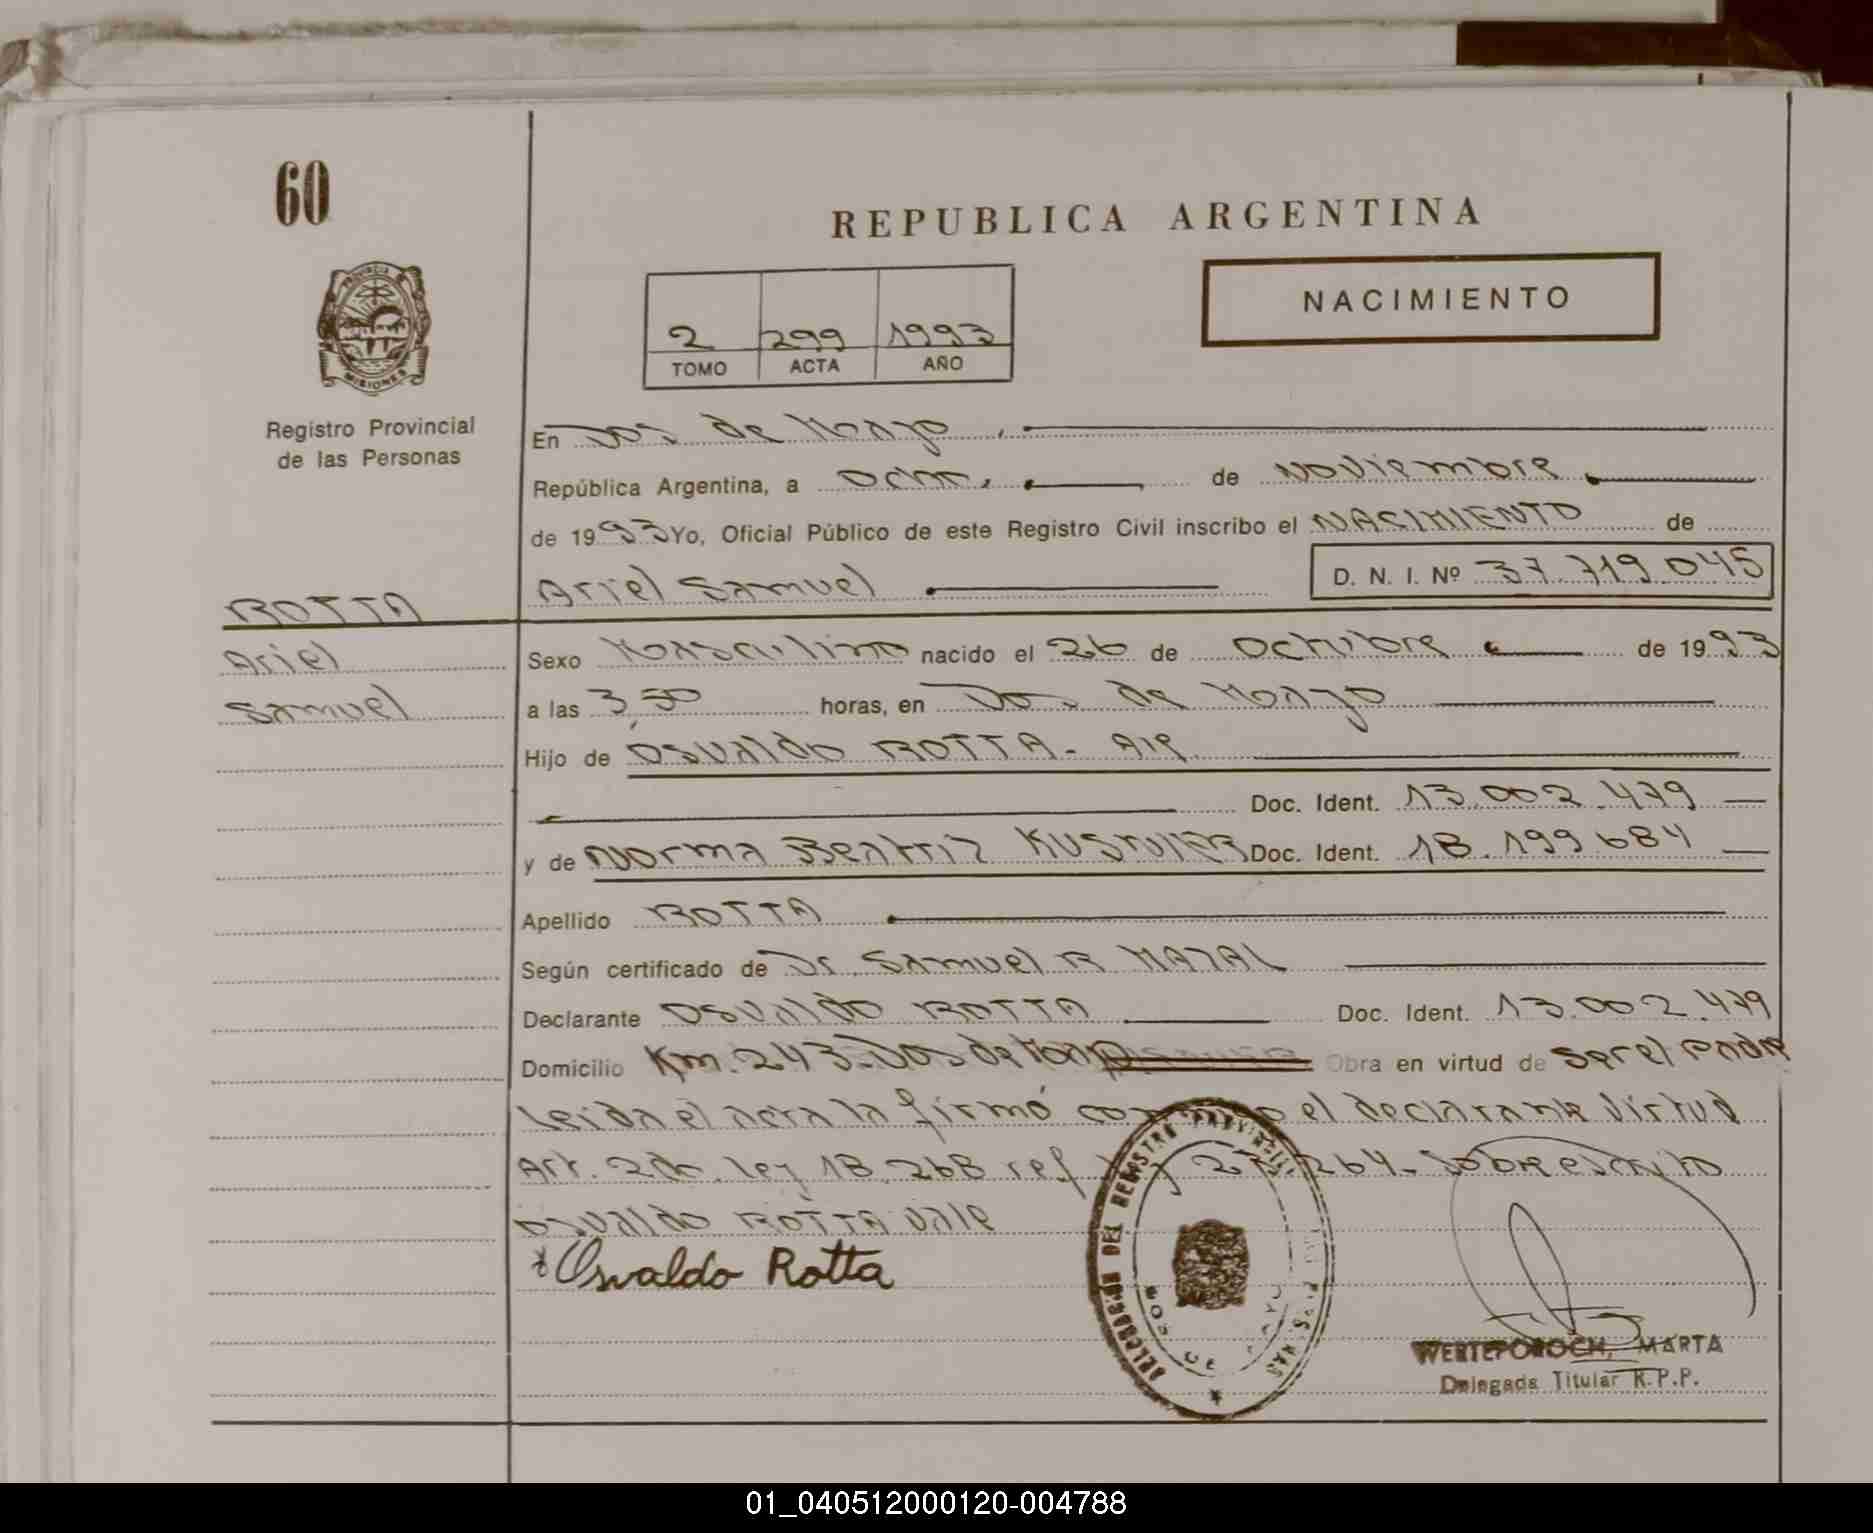 60
REPUBLICA ARGENTINA
NACIMIENTO
2 299 1993
TOMO ACTA AÑO
PROVINCIA DE MISIONES
Registro Provincial
de las Personas
En Dos de Mayo
República Argentina, a ocho de Noviembre
de 1993 Yo, Oficial Público de este Registro Civil inscribo el NACIMIENTO de
Ariel Samuel D. N. I. Nº 37.719.045
ROTTA
Ariel
Samuel
Sexo Masculino nacido el 26 de Octubre de 1993
a las 3,50 horas, en Dos de Mayo
Hijo de OSVALDO ROTTA -
Doc. Ident. 13.002.479
y de Norma Beatriz Doc. Ident. 18.199.684
Apellido ROTTA
Según certificado de Dr. Samuel R
Declarante OSVALDO ROTTA Doc. Ident. 13.002.479
Domicilio Km. 243 - Dos de Mayo Obra en virtud de ser el Padre
Leida el acta la firmó el declarante virtud
Art. ley 18.268 ref. 264 - Sobreescrito
OSVALDO ROTTA vale
Osvaldo Rotta
DELEGACION DEL REGISTRO PROVINCIAL DE LAS PERSONAS
DOS DE MAYO
WERTEPOROCH, MARTA
Delegada Titular R.P.P.
01_040512000120-004788